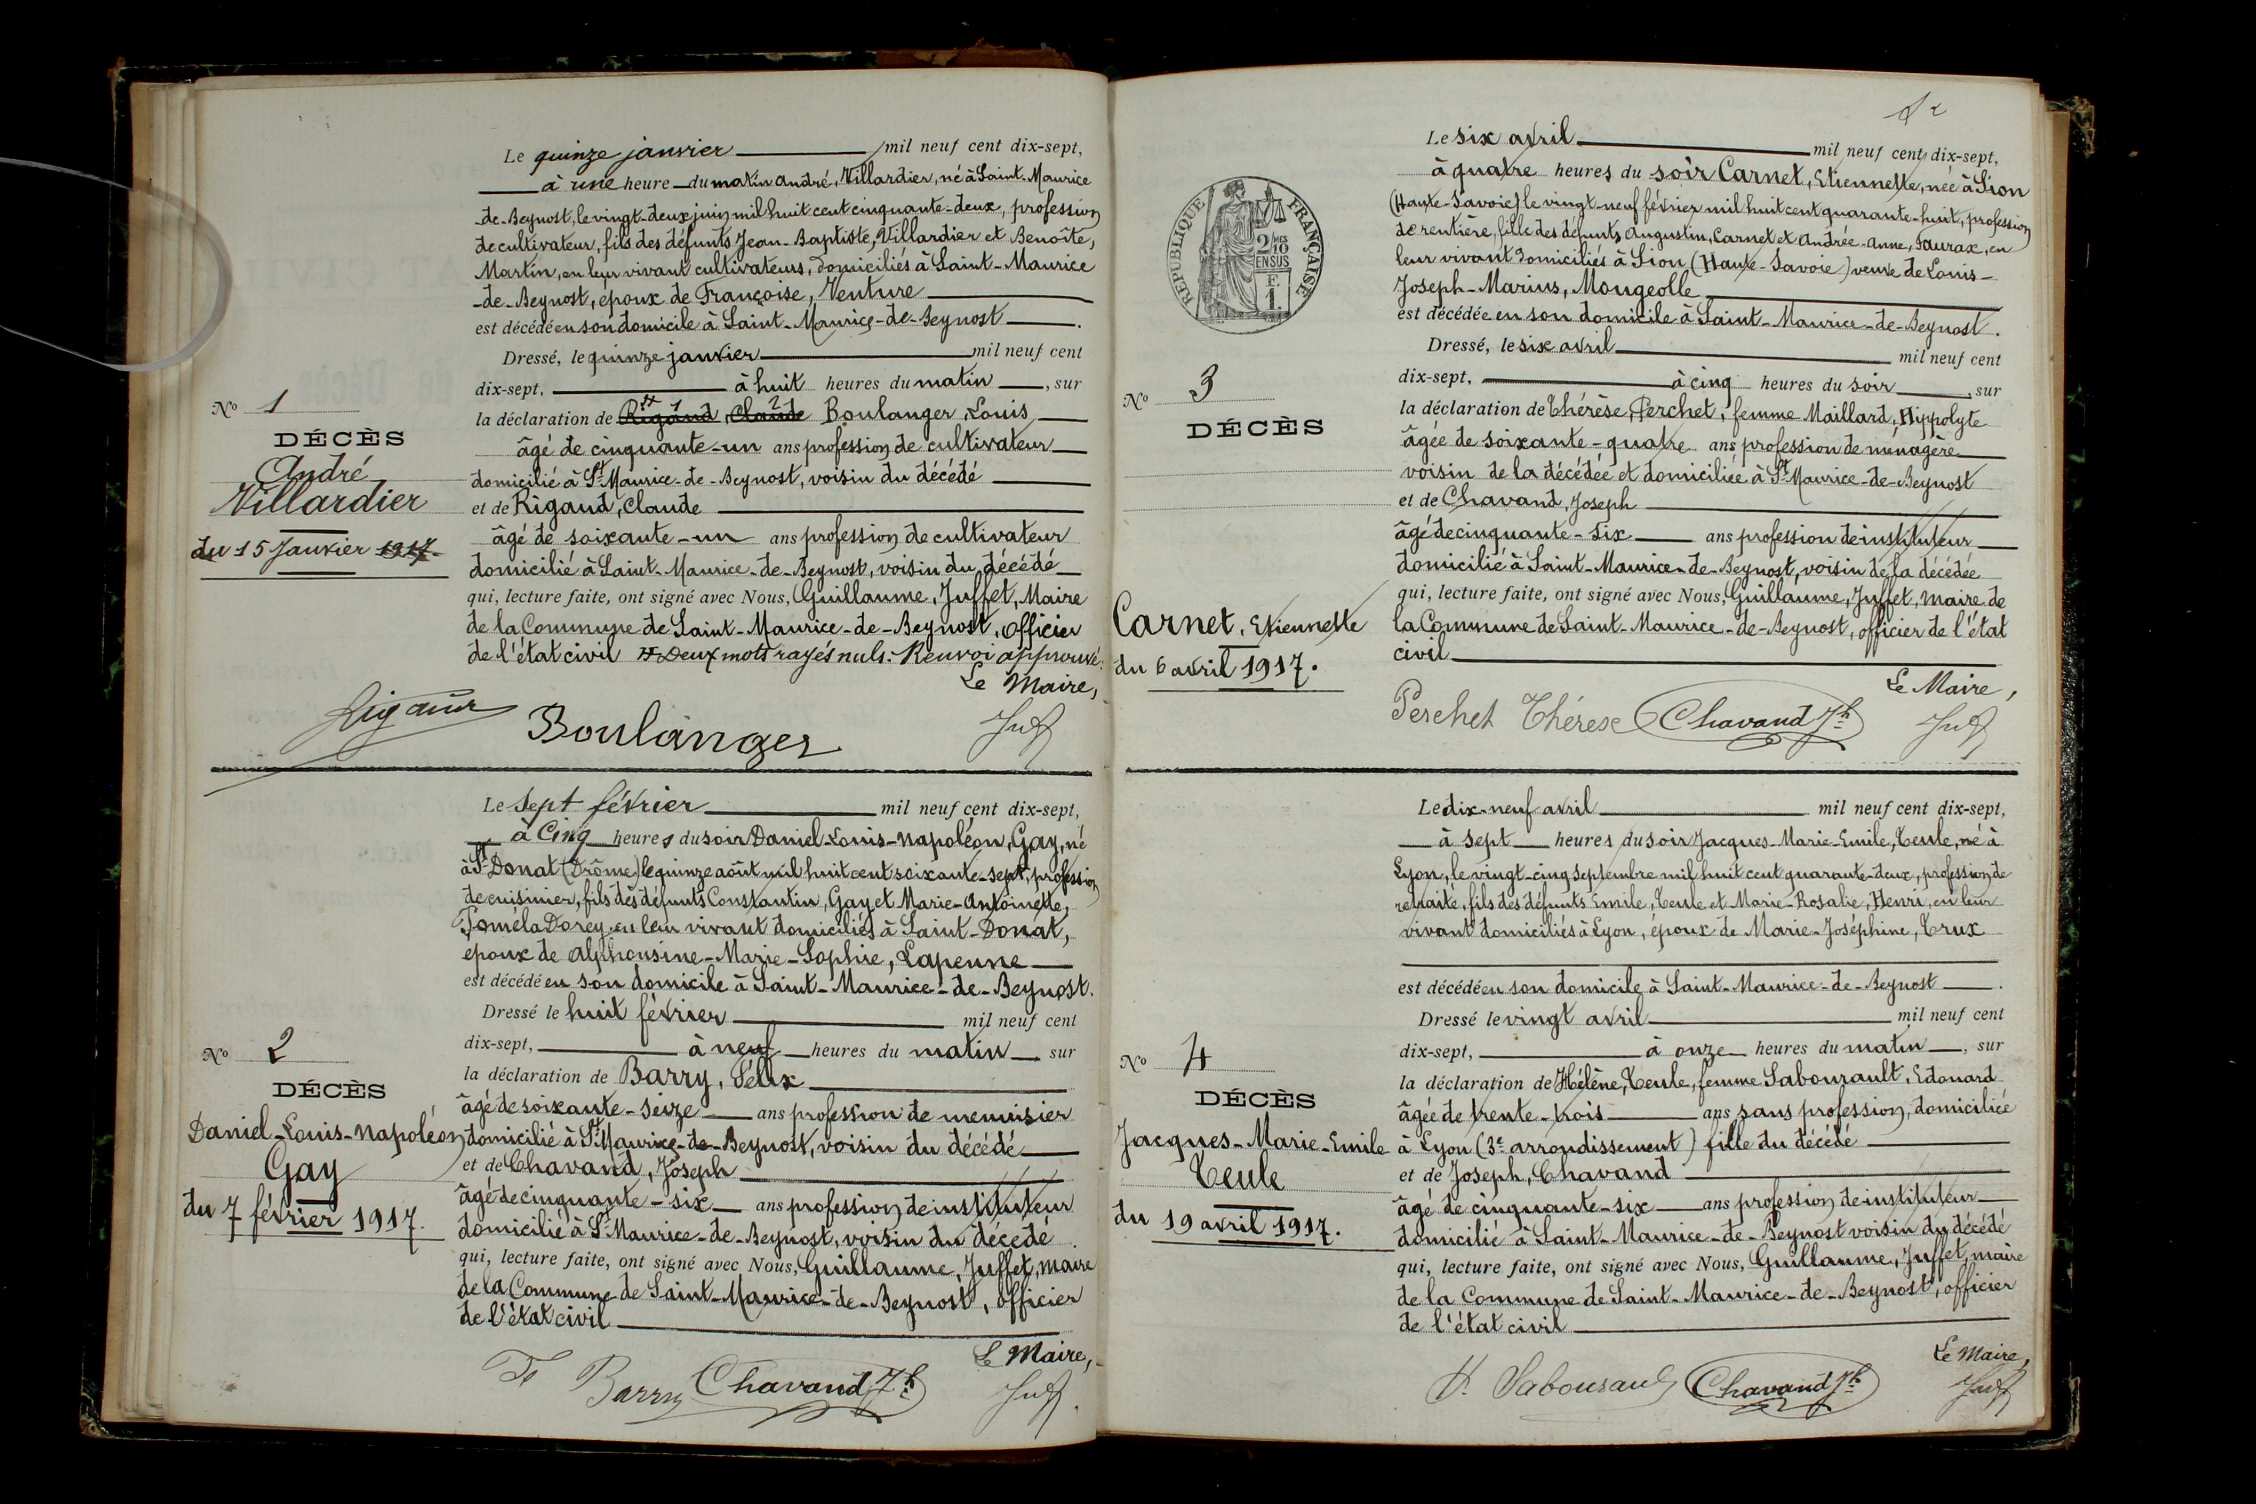 Le quinze janvier mil neuf cent dix-sept,
à une heure du matin André, Villardier, né à Saint-Maurice
-de-Beynost, le vingt-deux juin mil huit cent cinquante-deux, profession
de cultivateur, fils des défunts Jean-Baptiste, Villardier et Benoîte,
Martin, en leur vivant cultivateurs, domiciliés à Saint-Maurice
-de-Beynost, époux de Françoise, Venture
est décédé en son domicile à Saint-Maurice-de-Beynost.
Dressé, le quinze janvier mil neuf cent
dix-sept, à huit heures du matin, sur
la déclaration de Rigaud 1 Claude 2 Boulanger, Louis
âgé de cinquante-un ans profession de cultivateur
domicilié à St Maurice-de-Beynost, voisin du décédé
et de Rigaud, Claude
âgé de soixante-un ans profession de cultivateur
domicilié à Saint-Maurice-de-Beynost, voisin du décédé
qui, lecture faite, ont signé avec Nous, Guillaume, Juffet, Maire
de la Commune de Saint-Maurice-de-Beynost, officier
de l'état civil # Deux mots rayés nuls. Renvoi approuvé.
Le Maire,
Boulanger
Juf
No 1
DÉCÈS
André
Villardier
du 15 Janvier 1917
Le sept février mil neuf cent dix-sept,
à Cinq heures du soir Daniel-Louis-Napoléon, Gay, né
à St Donat (Drôme) le quinze août mil huit cent soixante-sept, profession
de cuisinier, fils des défunts Constantin, Gay et Marie-Antoinette,
Poméla Dorey en leur vivant domiciliés à Saint-Donat,
époux de Alphonsine-Marie-Sophie, Lapenne
est décédé en son domicile à Saint-Maurice-de-Beynost.
Dressé le huit février mil neuf cent
dix-sept, à neuf heures du matin sur
la déclaration de Barry, Félix
âgé de soixante-seize ans profession de menuisier
domicilié à St Maurice-de-Beynost, voisin du décédé
et de Chavand, Joseph
âgé de cinquante-six ans profession de instituteur
domicilié à St Maurice-de-Beynost, voisin du décédé
qui, lecture faite, ont signé avec Nous, Guillaume, Juffet, maire
de la Commune de Saint-Maurice-de-Beynost, officier
de l'état civil
Le Maire,
Barry Chavand Jh
Juf
No 2
DÉCÈS
Daniel-Louis-Napoléon
Gay
du 7 février 1917.
RÉPUBLIQUE FRANÇAISE
2/10 EN SUS
F
1
Le six avril mil neuf cent dix-sept,
à quatre heures du soir Carnet, Etiennette, née à Sion
(Haute-Savoie) le vingt-neuf février mil huit cent quarante-huit, profession
de rentière, fille des défunts Augustin, Carnet et Andrée-Anne, Saurax, en
leur vivant domiciliés à Sion (Haute-Savoie) veuve de Louis-
Joseph-Marius, Mougeolle
est décédée en son domicile à Saint-Maurice-de-Beynost.
Dressé, le six avril mil neuf cent
dix-sept, à cinq heures du soir, sur
la déclaration de Thérèse, Perchet, femme Maillard, Hippolyte
âgée de soixante-quatre ans profession de ménagère
voisin de la décédée et domiciliée à St Maurice-de-Beynost
et de Chavand, Joseph
âgé de cinquante-six ans profession de instituteur
domicilié à Saint-Maurice-de-Beynost, voisin de la décédée
qui, lecture faite, ont signé avec Nous, Guillaume, Juffet, maire de
la Commune de Saint-Maurice-de-Beynost, officier de l'état
civil
Le Maire,
Perchet Thérèse Chavand Jh
Juf
No 3
DÉCÈS
Carnet, Etiennette
du 6 avril 1917.
Le dix-neuf avril mil neuf cent dix-sept,
à sept heures du soir Jacques-Marie-Emile, Teule, né à
Lyon, le vingt-cinq septembre mil huit cent quarante-deux, profession de
retraité, fils des défunts Emile, Teule et Marie-Rosalie, Henri, en leur
vivant domiciliés à Lyon, époux de Marie-Joséphine, Trux
est décédé en son domicile à Saint-Maurice-de-Beynost.
Dressé le vingt avril mil neuf cent
dix-sept, à onze heures du matin, sur
la déclaration de Hélène, Teule, femme Sabourault, Edouard
âgée de trente-trois ans sans profession, domiciliée
à Lyon (3e arrondissement) fille du décédé
et de Joseph, Chavand
âgé de cinquante-six ans profession de instituteur
domicilié à Saint-Maurice-de-Beynost voisin du décédé
qui, lecture faite, ont signé avec Nous, Guillaume, Juffet, maire
de la Commune de Saint-Maurice-de-Beynost, officier
de l'état civil
Le Maire,
H. Sabourault Chavand Jh
Juf
No 4
DÉCÈS
Jacques-Marie-Emile
Teule
du 19 avril 1917.